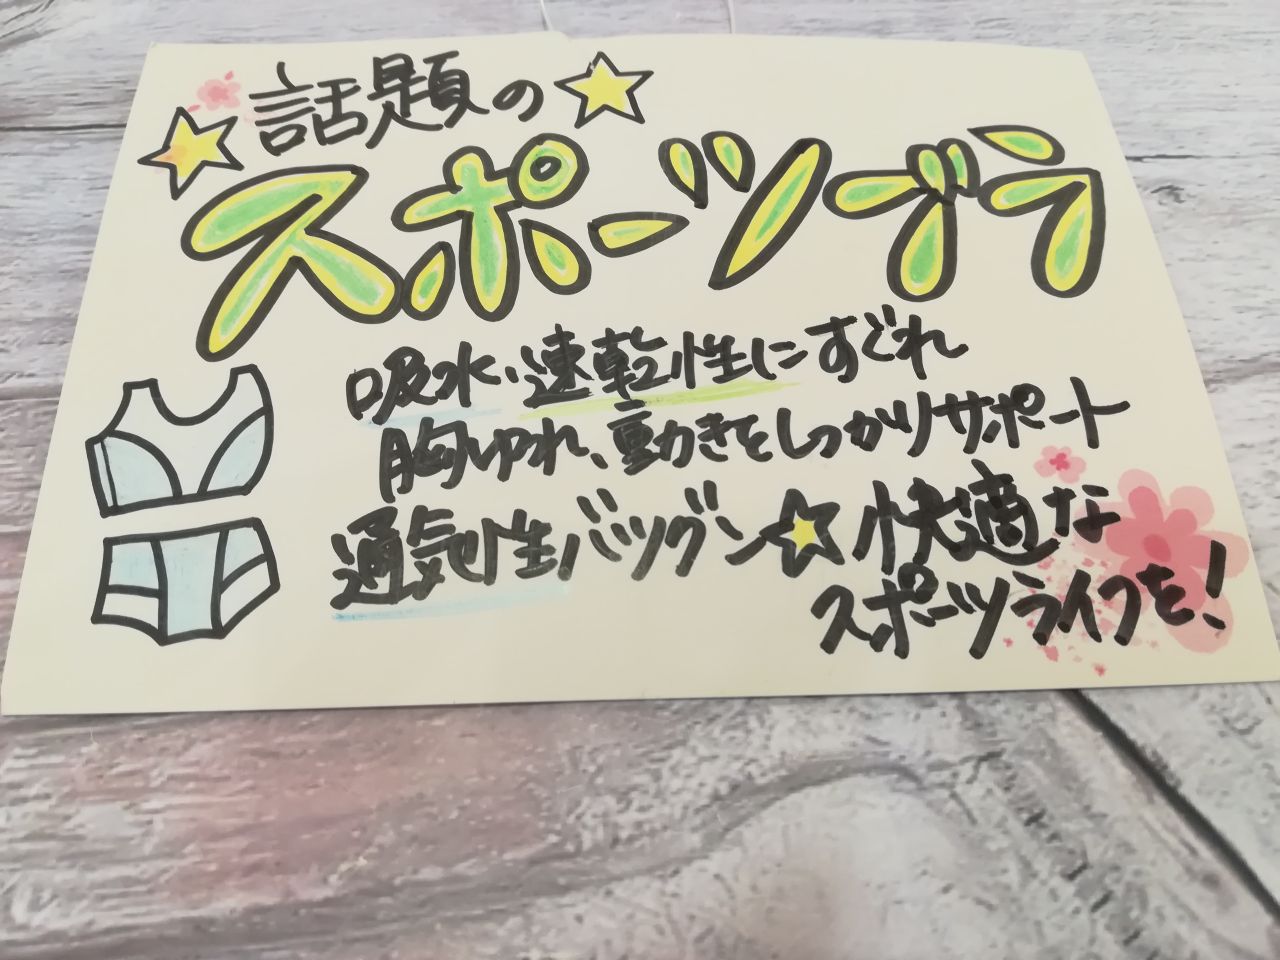 話題の
スポーツブラ
吸水・速乾性にすぐれ
胸ゆれ、動きをしっかりサポート
通気性バツグン☆快適な
スポーツライフを!